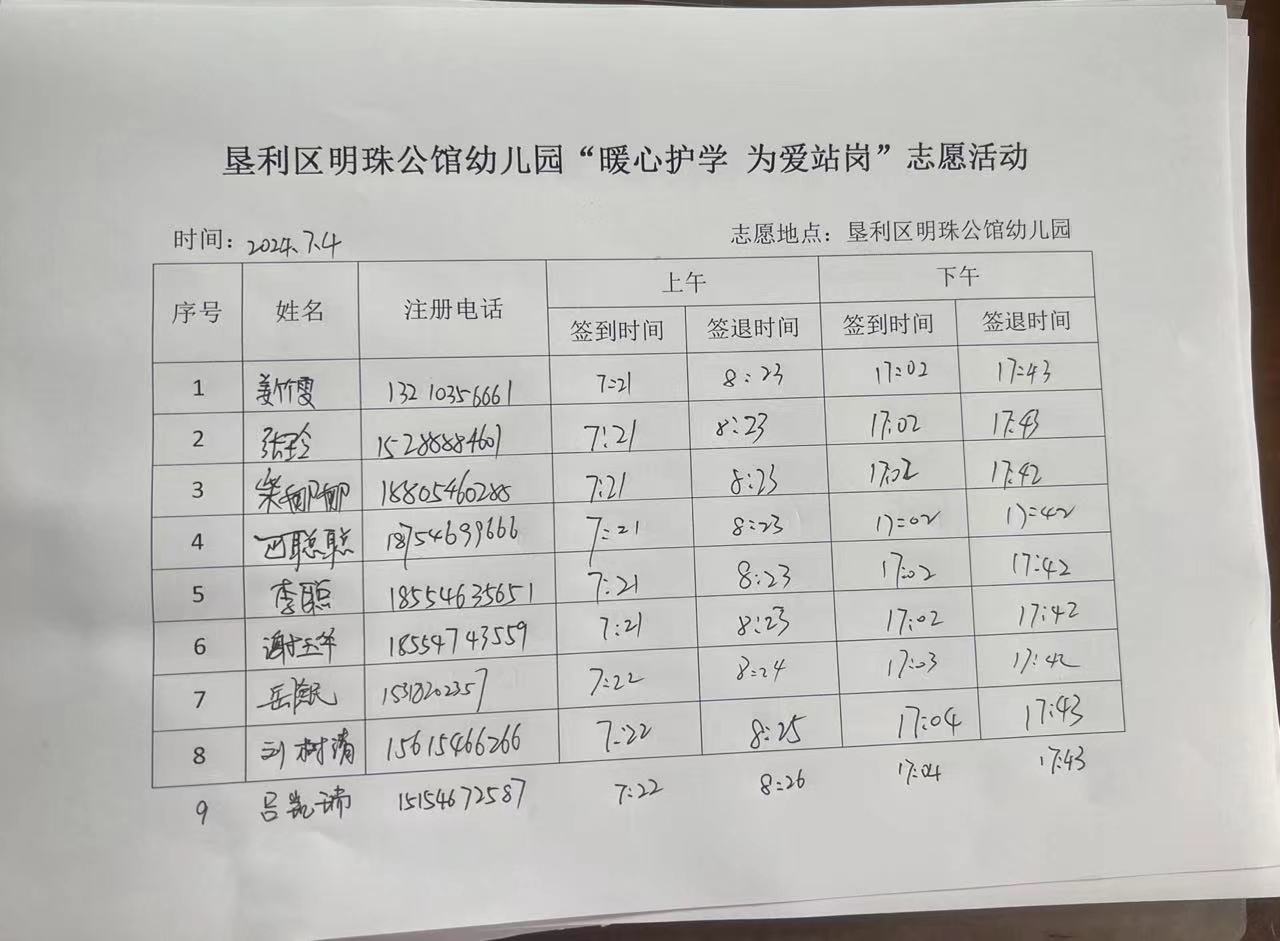 垦利区明珠公馆幼儿园“暖心护学 为爱站岗”志愿活动
时间：2024.7.4 志愿地点：垦利区明珠公馆幼儿园
序号 姓名 注册电话 上午 下午
签到时间 签退时间 签到时间 签退时间
1 姜竹雯 13210356661 7:21 8:23 17:02 17:43
2 张玲 15288884601 7:21 8:23 17:02 17:43
3 柴娜娜 18805460288 7:21 8:23 17:02 17:42
4 聪聪 18754699666 7:21 8:23 17:02 17:42
5 李聪 18554635651 7:21 8:23 17:02 17:42
6 谢玉华 18554743559 7:21 8:23 17:02 17:42
7 岳 7:22 8:24 17:03 17:42
8 刘树清 15615466266 7:22 8:25 17:04 17:43
9 吕凯瑞 15154672587 7:22 8:26 17:04 17:43